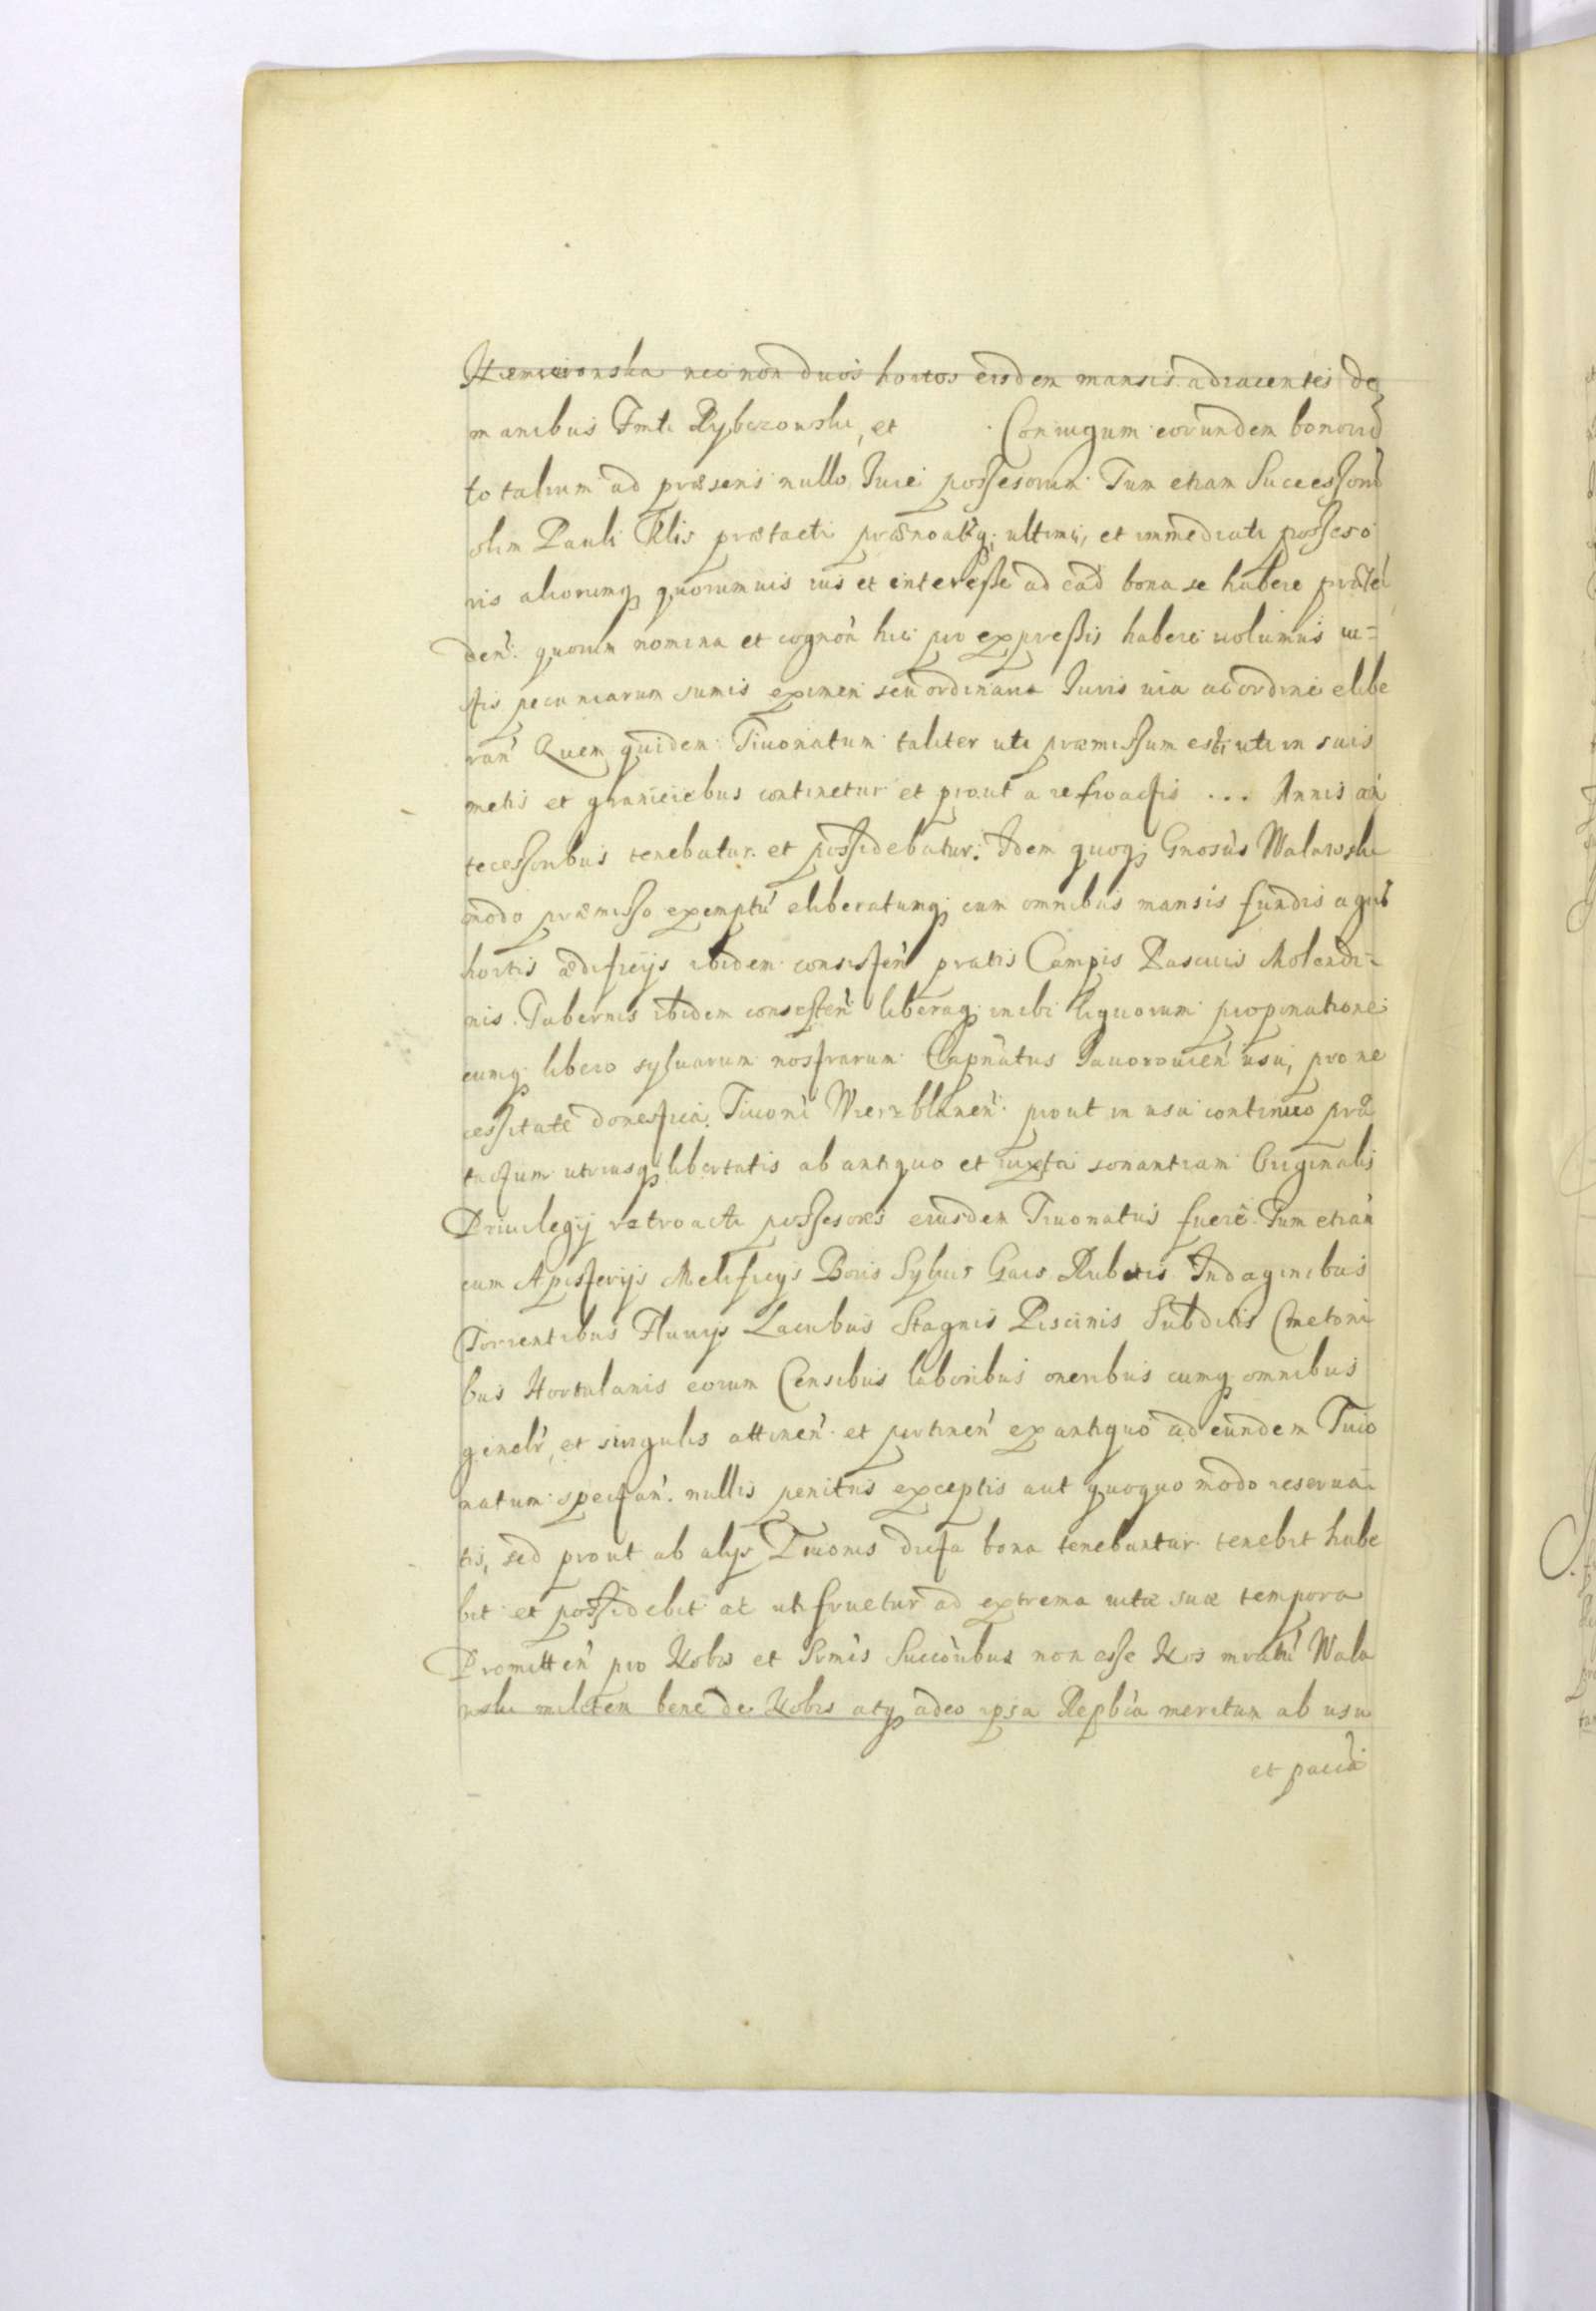 necnon duos hortos eisdem mansis adiacentes de
manibus Fmti Rybczowski, et Coniugum eorundem bonorũ
totalium ad præsens nullo Jure possesorum Tum etiam Successorũ
olim Pauli Klis prætacti ultimi, et immediati posseso
ris aliorumq; quorumuis ius et interesse ad ead bona se habere præten
den: quorum nomina et cognon hic pro expressis habere uolumus iu=
stis pecuniarum sumis eximen seu ordinaria Juris uia ac ordine elibe
ran Quem quidem Tiuonatum taliter uti præmissum est, uti in suis
metis et graniciebus continetur et prout a retroactis ... Annis an
tecessoribus tenebatur et possidebatur. Idem quoq; Gnosus Walawski
modo præmisso exemptũ eliberatumq; cum omnibus mansis fundis agris
hortis ædificijs ibidem consisten pratis Campis Pascuis Molendi=
nis Tabernis ibidem consisten liberaq; inibi liquorum propinatione
cumq; libero syluarum nostrarum Capnatus Jauorouien usu, pro ne
cessitate domestica Tiuoni Wierzblanen: prout in usu continuo præ
tactum utriusq; libertatis ab antiquo et iuxta sonantiam Originalis
Priuilegij retroacti possesores eiusdem Tiuonatus fuere. Tum etiam
cum Apisterijs Melificijs Boris Syluis Gais Rubetis Indaginibus
Torrentibus Fluuijs Lacubus Stagnis Piscinis Subditis Cmetoni
bus Hortulanis eorum Censibus laboribus oneribus cumq; omnibus
ginelr, et singulis attinen et pertinen ex antiquo ad eundem Tiuo
natum spectan. nullis penitus exceptis aut quoquo modo reserua=
tis, sed prout ab alijs Tiuonis dicta bona tenebantur tenebit habe
bit et possidebit ac utifruetur ad extrema uitæ suæ tempora
Promitten pro Nobis et Srmis Succoribus non esse Nos Wala
wski militem bene de Nobis atq; adeo ipsa Repbca meritum ab usu
et pacca